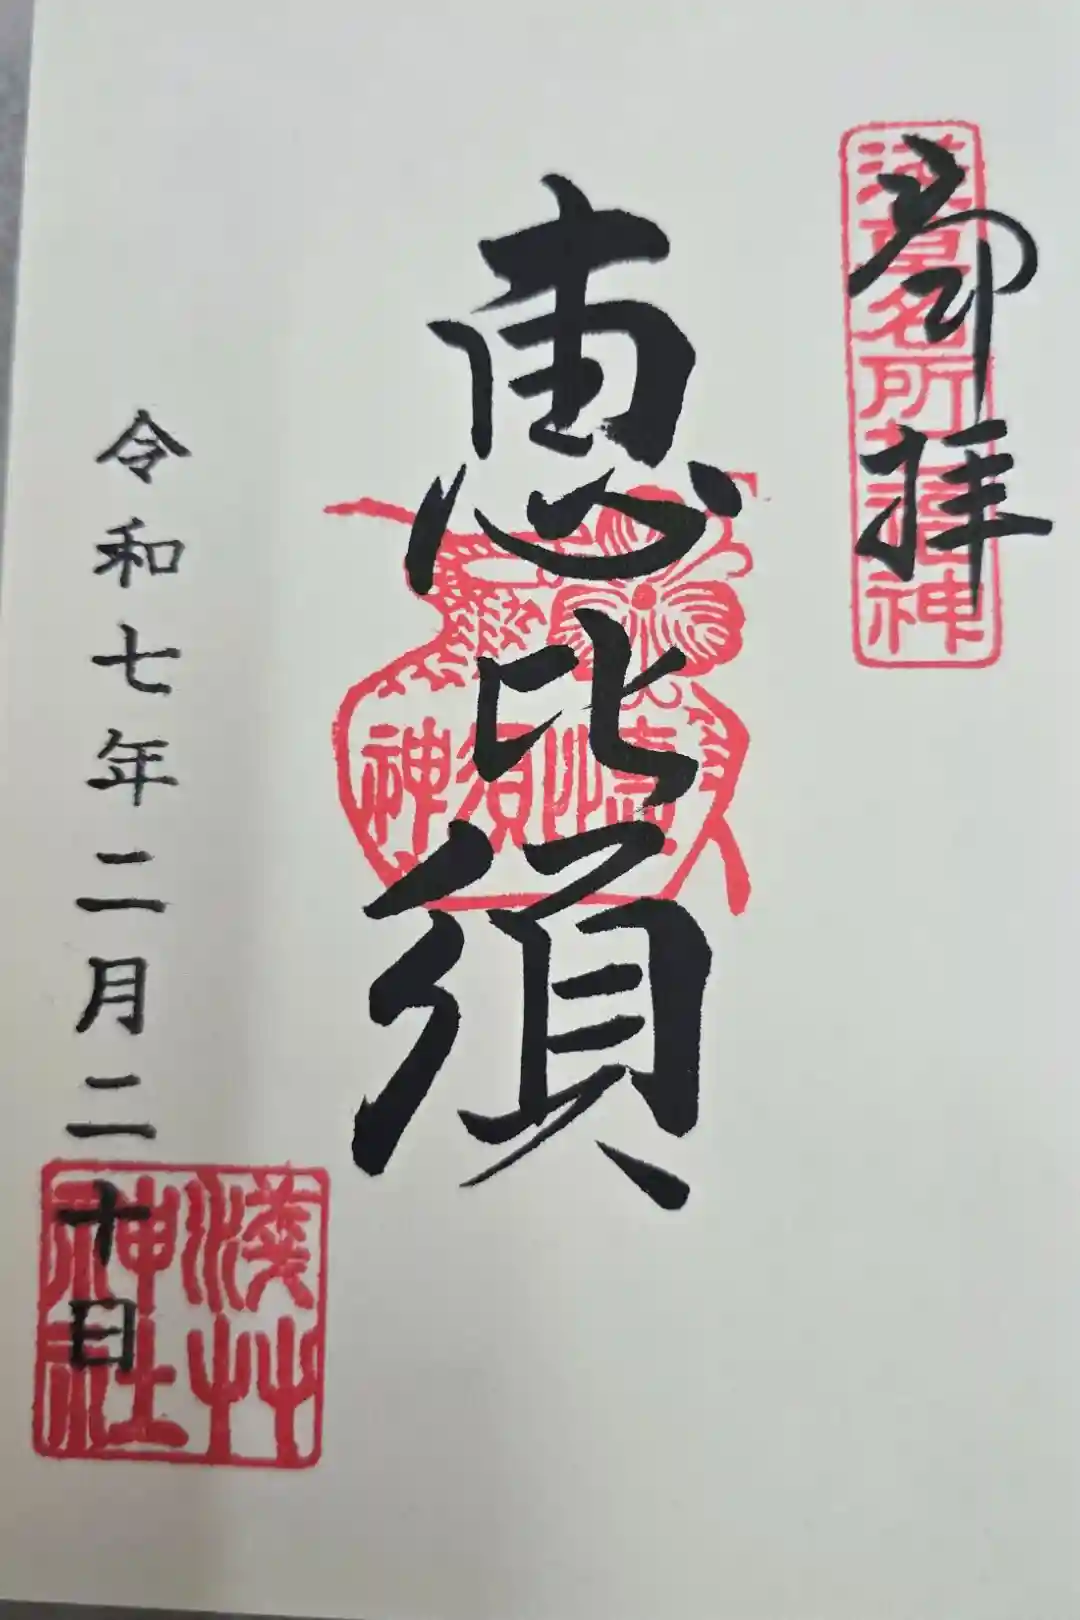 奉拝
浅草名所七福神
恵比須
恵比須神
令和七年二月二十日
浅草神社